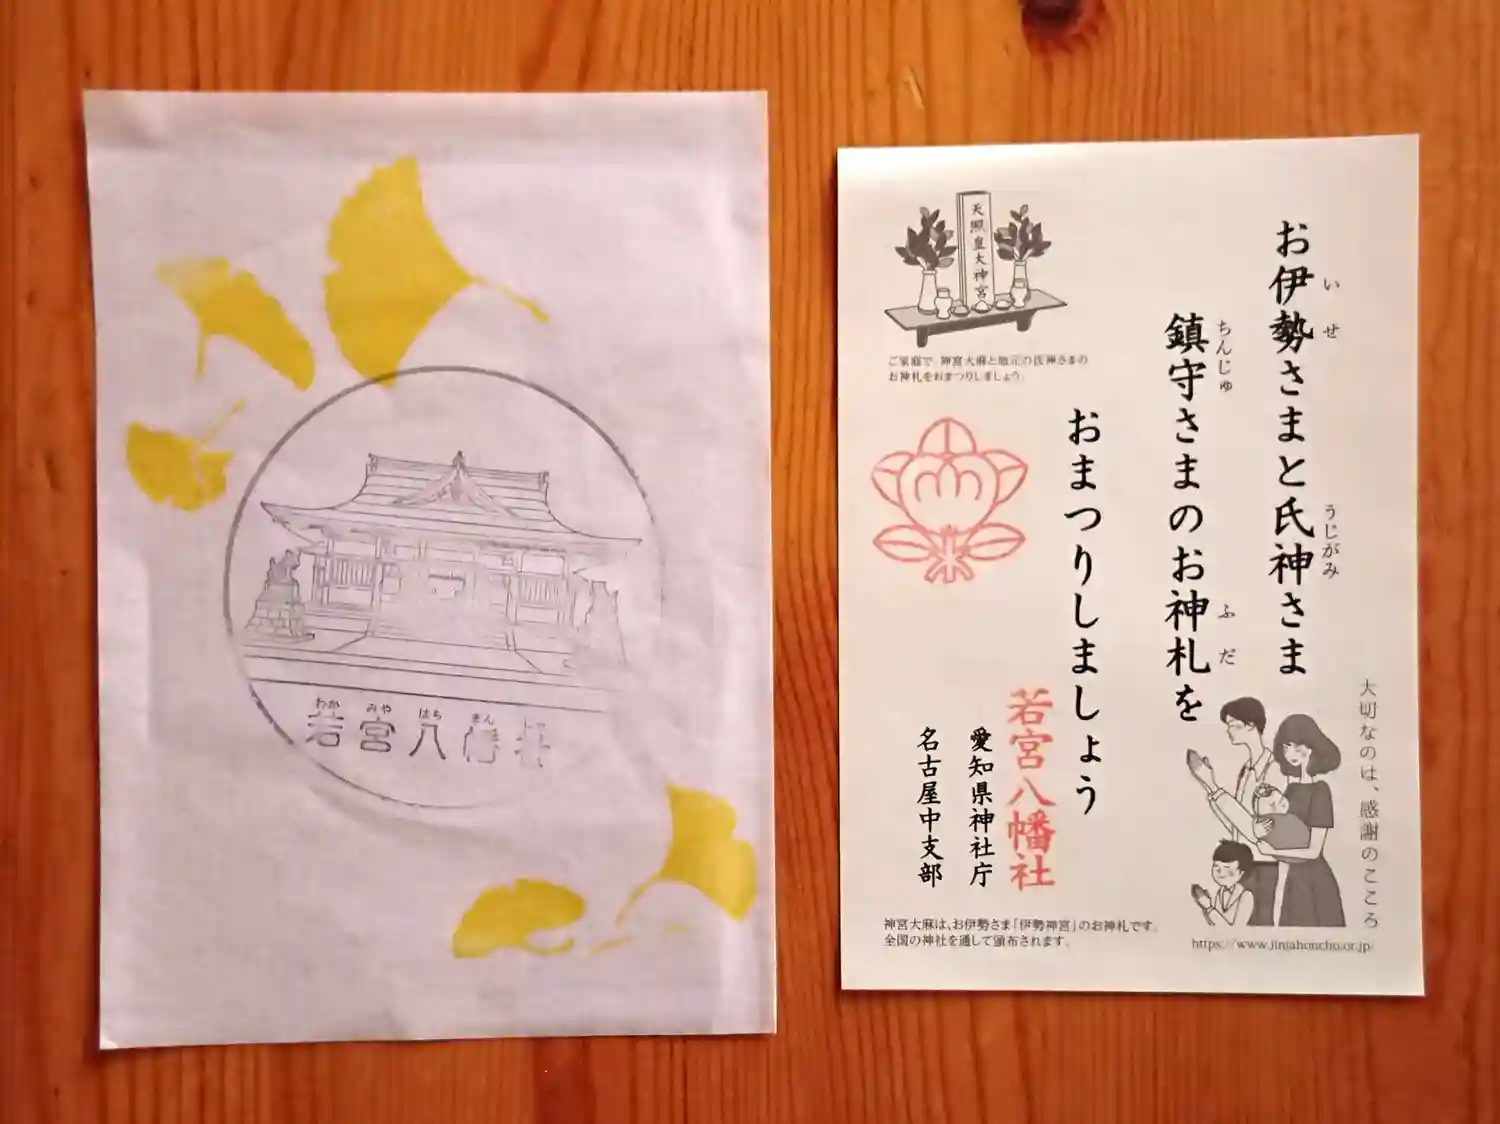 わか みや はち まん
若宮八幡社
天照皇大神宮
ご家庭で、神宮大麻と地元の氏神さまの
お神札をおまつりしましょう。
お伊勢さまと氏神さま
いせ
うじがみ
鎮守さまのお神札を
ちんじゅ
ふだ
おまつりしましょう
若宮八幡社
愛知県神社庁
名古屋中支部
大切なのは、感謝のこころ
神宮大麻は、お伊勢さま「伊勢神宮」のお神札です。
全国の神社を通して頒布されます。
https://www.jinjahoncho.or.jp/